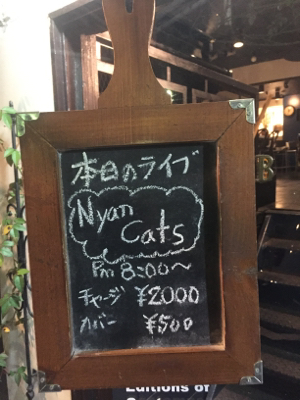 本日のライブ
Nyan
Cats
Pm 8:00〜
チャージ ¥2000
カバー ¥500
B
Editions of